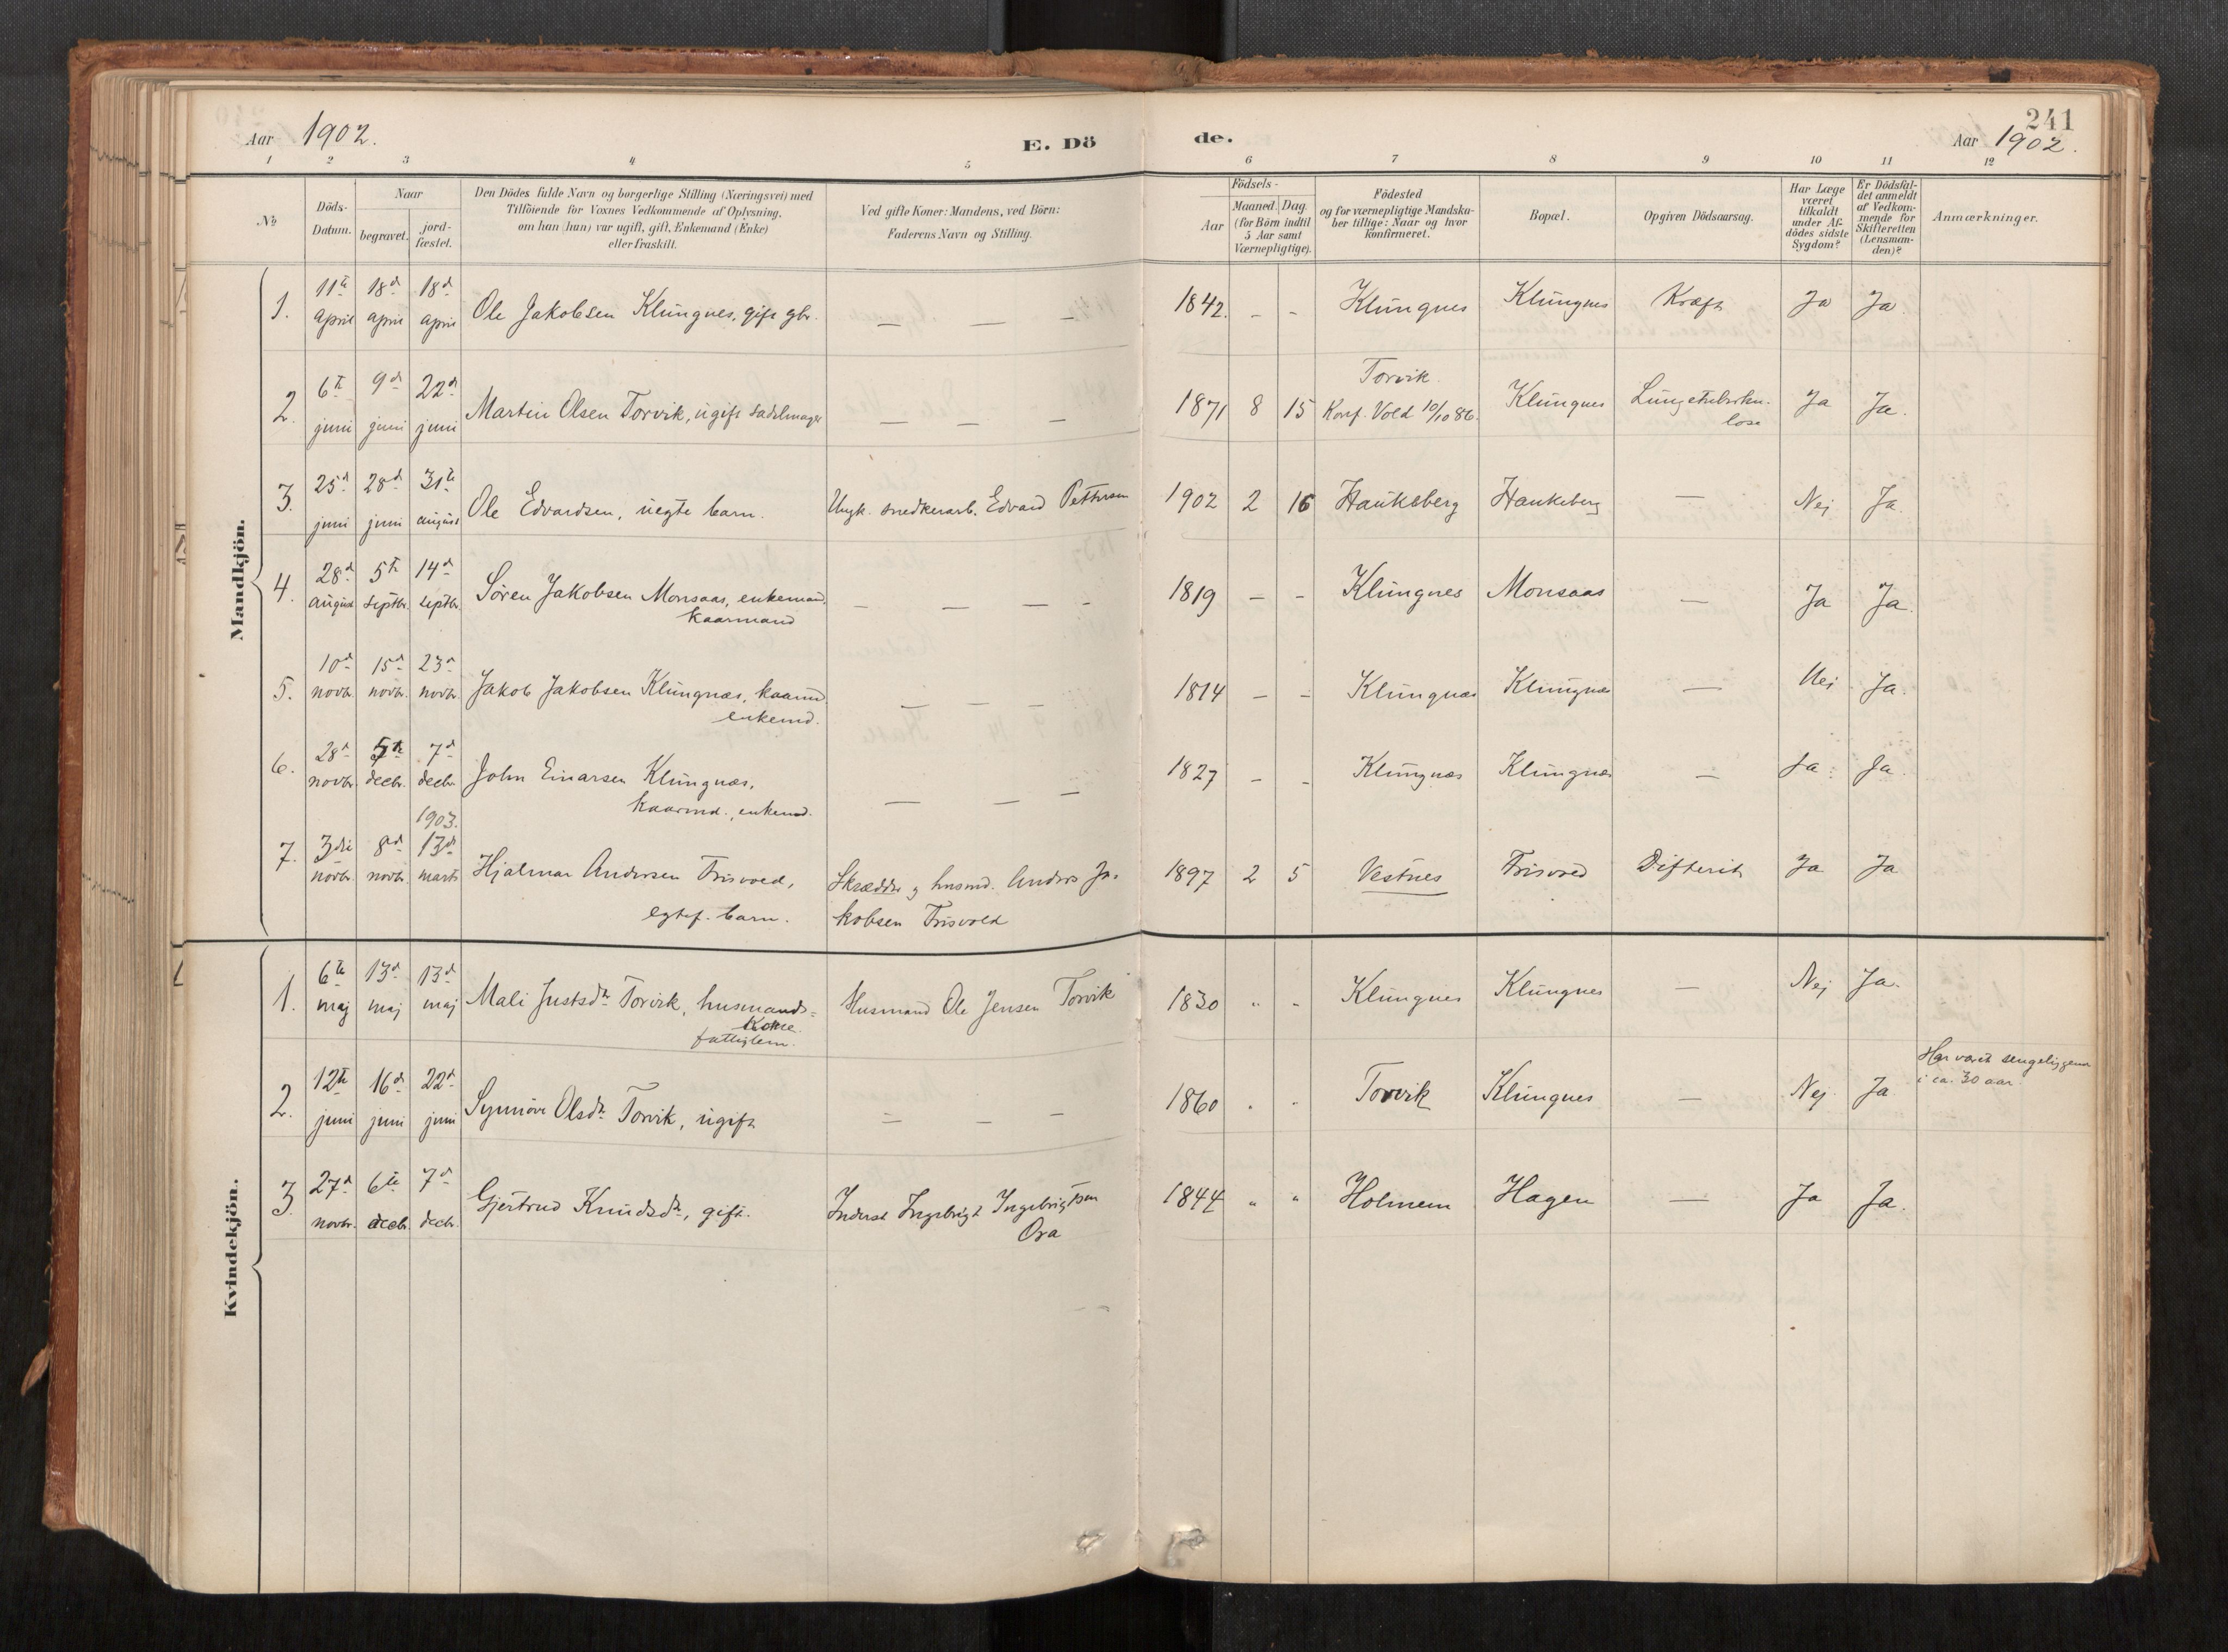 241
Aar 1902. E. Dö de. Aar 1902.
1 2 3 4 5 6 7 8 9 10 11 12
No
Döds-Datum.
Naar
begravet.
jord-fæstet.
Den Dödes fulde Navn og borgerlige Stilling (Næringsvei) med
Tilföiende for Voxnes Vedkommende af Oplysning,
om han (hun) var ugift, gift, Enkemand (Enke)
eller fraskilt.
Ved gifte Koner: Mandens, ved Börn:
Faderens Navn og Stilling.
Födsels-
Aar
Maaned. Dag.
(for Börn indtil
5 Aar samt
Værnepligtige).
Födested
og for værnepligtige Mandska-
ber tillige: Naar og hvor
konfirmeret.
Bopæl.
Opgiven Dödsaarsag.
Har Læge
været
tilkaldt
under Af-
dödes sidste
Sygdom?
Er Dödsfal-
det anmeldt
af Vedkom-
mende for
Skifteretten
(Lensman-
den)?
Anmærkninger.
Mandkjön.
1. 11te april 18d april 18d april Ole Jakobsen Klungnes, gift gbr. — — — 1842. - - Klungnes Klungnes Kræft Ja Ja.
2. 6te juni 9d juni 22d juni Martin Olsen Torvik, ugift sadelmager — — — 1871 8 15 Torvik
Konf. Vold 10/10 86. Klungnes Lungetuberku-
lose Ja Ja.
3. 25d juni 28d juni 31te august Ole Edvardsen, uegte barn. Ungk. snedkerarb. Edvard Pettersen 1902 2 16 Haukeberg Haukeberg — Nej Ja.
4. 28d august 5te septbr. 14d septbr. Søren Jakobsen Monsaas, enkemand,
kaarmand — — — - 1819 — - Klungnes Monsaas — Ja Ja.
5. 10d novbr. 15d novbr. 23d novbr. Jakob Jakobsen Klungnæs, kaarmd.
enkemd. — — — 1814 — - Klungnæs Klungnæs — Nej Ja.
6. 28d novbr. 5te decbr. 7d decbr. John Einarsen Klungnæs,
kaarmd., enkemd. — — — 1827 - - Klungnæs Klungnæs — Ja. Ja.
7. 3die novbr. 8d novbr. 1903. 13d marts Hjalmar Andersen Frisvold,
egtef. barn. Skrædder og husmd. Anders Ja-
kobsen Frisvold 1897 2 5 Vestnes Frisvold Difterit Ja Ja
Kvindekjön.
1. 6te maj 13d maj 13d maj Mali Justsdtr Torvik, husmands-
kone.
fattiglem. Husmand Ole Jensen Torvik 1830 " - Klungnes Klungnes — Nej Ja.
2. 12te juni 16d juni 22d juni Synnöve Olsdtr Torvik, ugift — — — 1860 " " Torvik Klungnes — Nej. Ja Har været sengeliggende
i ca. 30 aar.
3. 27d novbr. 6te decbr. 7d decbr. Gjertrud Knudsdtr, gift. Inderst Ingebrigt Ingebrigtsen
Ora 1844 " " Holmem Hagen — Ja Ja.